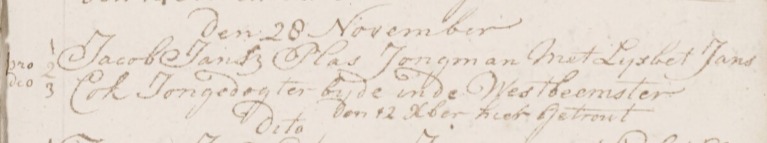 Den 28 November
pro 1 Jacob Jansz Plas Jongman Met Lysbet Jans
deo 2
3 Cok Jongedogter byde inde Westbeemster
den 12 Xber hier getrout
Dito